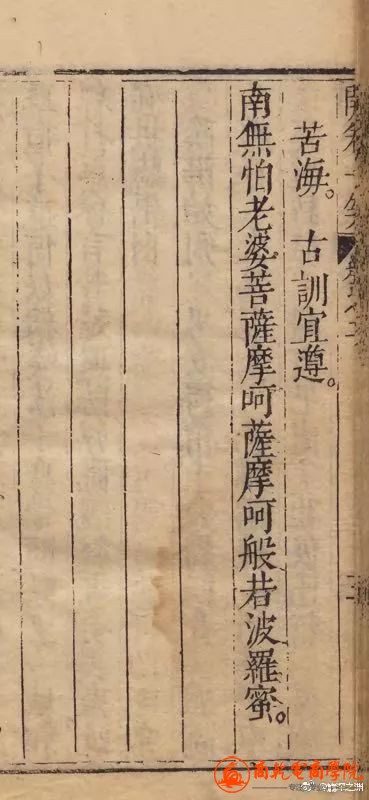 苦海。古訓宜遵。
南無怕老婆菩薩摩呵薩摩呵般若波羅蜜。
商兆电商学院